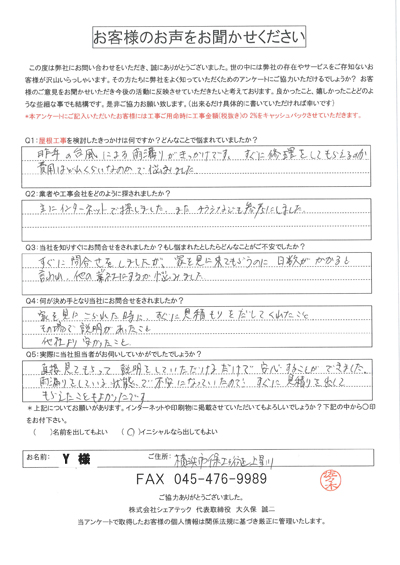 お客様のお声をお聞かせください
この度は弊社にお問い合わせをいただき、誠にありがとうございました。世の中には弊社の存在やサービスをご存知ないお
客様が沢山いらっしゃいます。その方たちに弊社をよく知っていただくためのアンケートにご協力いただけるでしょうか？ お客
様のご意見をお聞かせいただき今後の活動に反映させていただきたいと考えております。良かったこと、嬉しかったことどのよ
うな些細な事でも結構です。是非ご協力お願い致します。（出来るだけ具体的に書いていただければ幸いです）
*本アンケートにご記入いただいたお客様には工事ご用命時に工事金額(税抜き)の 2%をキャッシュバックさせていただきます。
Q1：屋根工事を検討したきっかけは何ですか？どんなことで悩まれていましたか？
昨年の台風による雨漏りがきっかけです。すぐに修理をしてもらえるのか
費用はどれくらいなのかで悩みました
Q2：業者や工事会社をどのように探されましたか？
主にインターネットで探しました。また チラシなども参考にしました。
Q3：当社を知りすぐにお問合せをされましたか？もし悩まれたとしたらどんなことがご不安でしたか？
すぐに問合せをしましたが、家を見に来てもらうのに日数がかかると
言われ、他の業者にするか悩みました
Q4：何が決め手となり当社にお問合せをされましたか？
家を見にこられた時に、すぐに見積もりをだしてくれたこと
その場で説明があったこと
他社より安かったこと
Q5：実際に当社担当者がお伺いしていかがでしたでしょうか？
直接見てもらって説明をしていただけるだけで安心することができました。
雨漏りをしている状態で不安になっていたので、すぐに見積りを出して
もらえたこともよかったです
＊上記についてお願いがあります。インターネットや印刷物に掲載させていただいてもよろしいでしょうか？下記の中から〇印
をお付け下さい。
（ ）名前を出してもよい （〇）イニシャルなら出してもよい
お名前： Y 様 ご住所： 横浜市保土ヶ谷区上星川
FAX 045-476-9989
ご協力ありがとうございました。
株式会社シェアテック 代表取締役 大久保 誠二
当アンケートで取得したお客様の個人情報は関係法規に基づき厳正に管理いたします。